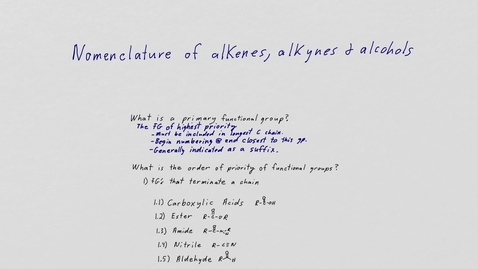 Nomenclature of alkenes, alkynes & alcohols
What is a primary functional group?
The FG of highest priority
- Must be included in longest C chain.
- Begin numbering @ end closest to this gp.
- Generally indicated as a suffix.
What is the order of priority of functional groups?
1) FG's that terminate a chain
1.1) Carboxylic Acids R-C(=O)-OH
1.2) Ester R-C(=O)-OR
1.3) Amide
1.4) Nitrile R-C≡N
1.5) Aldehyde